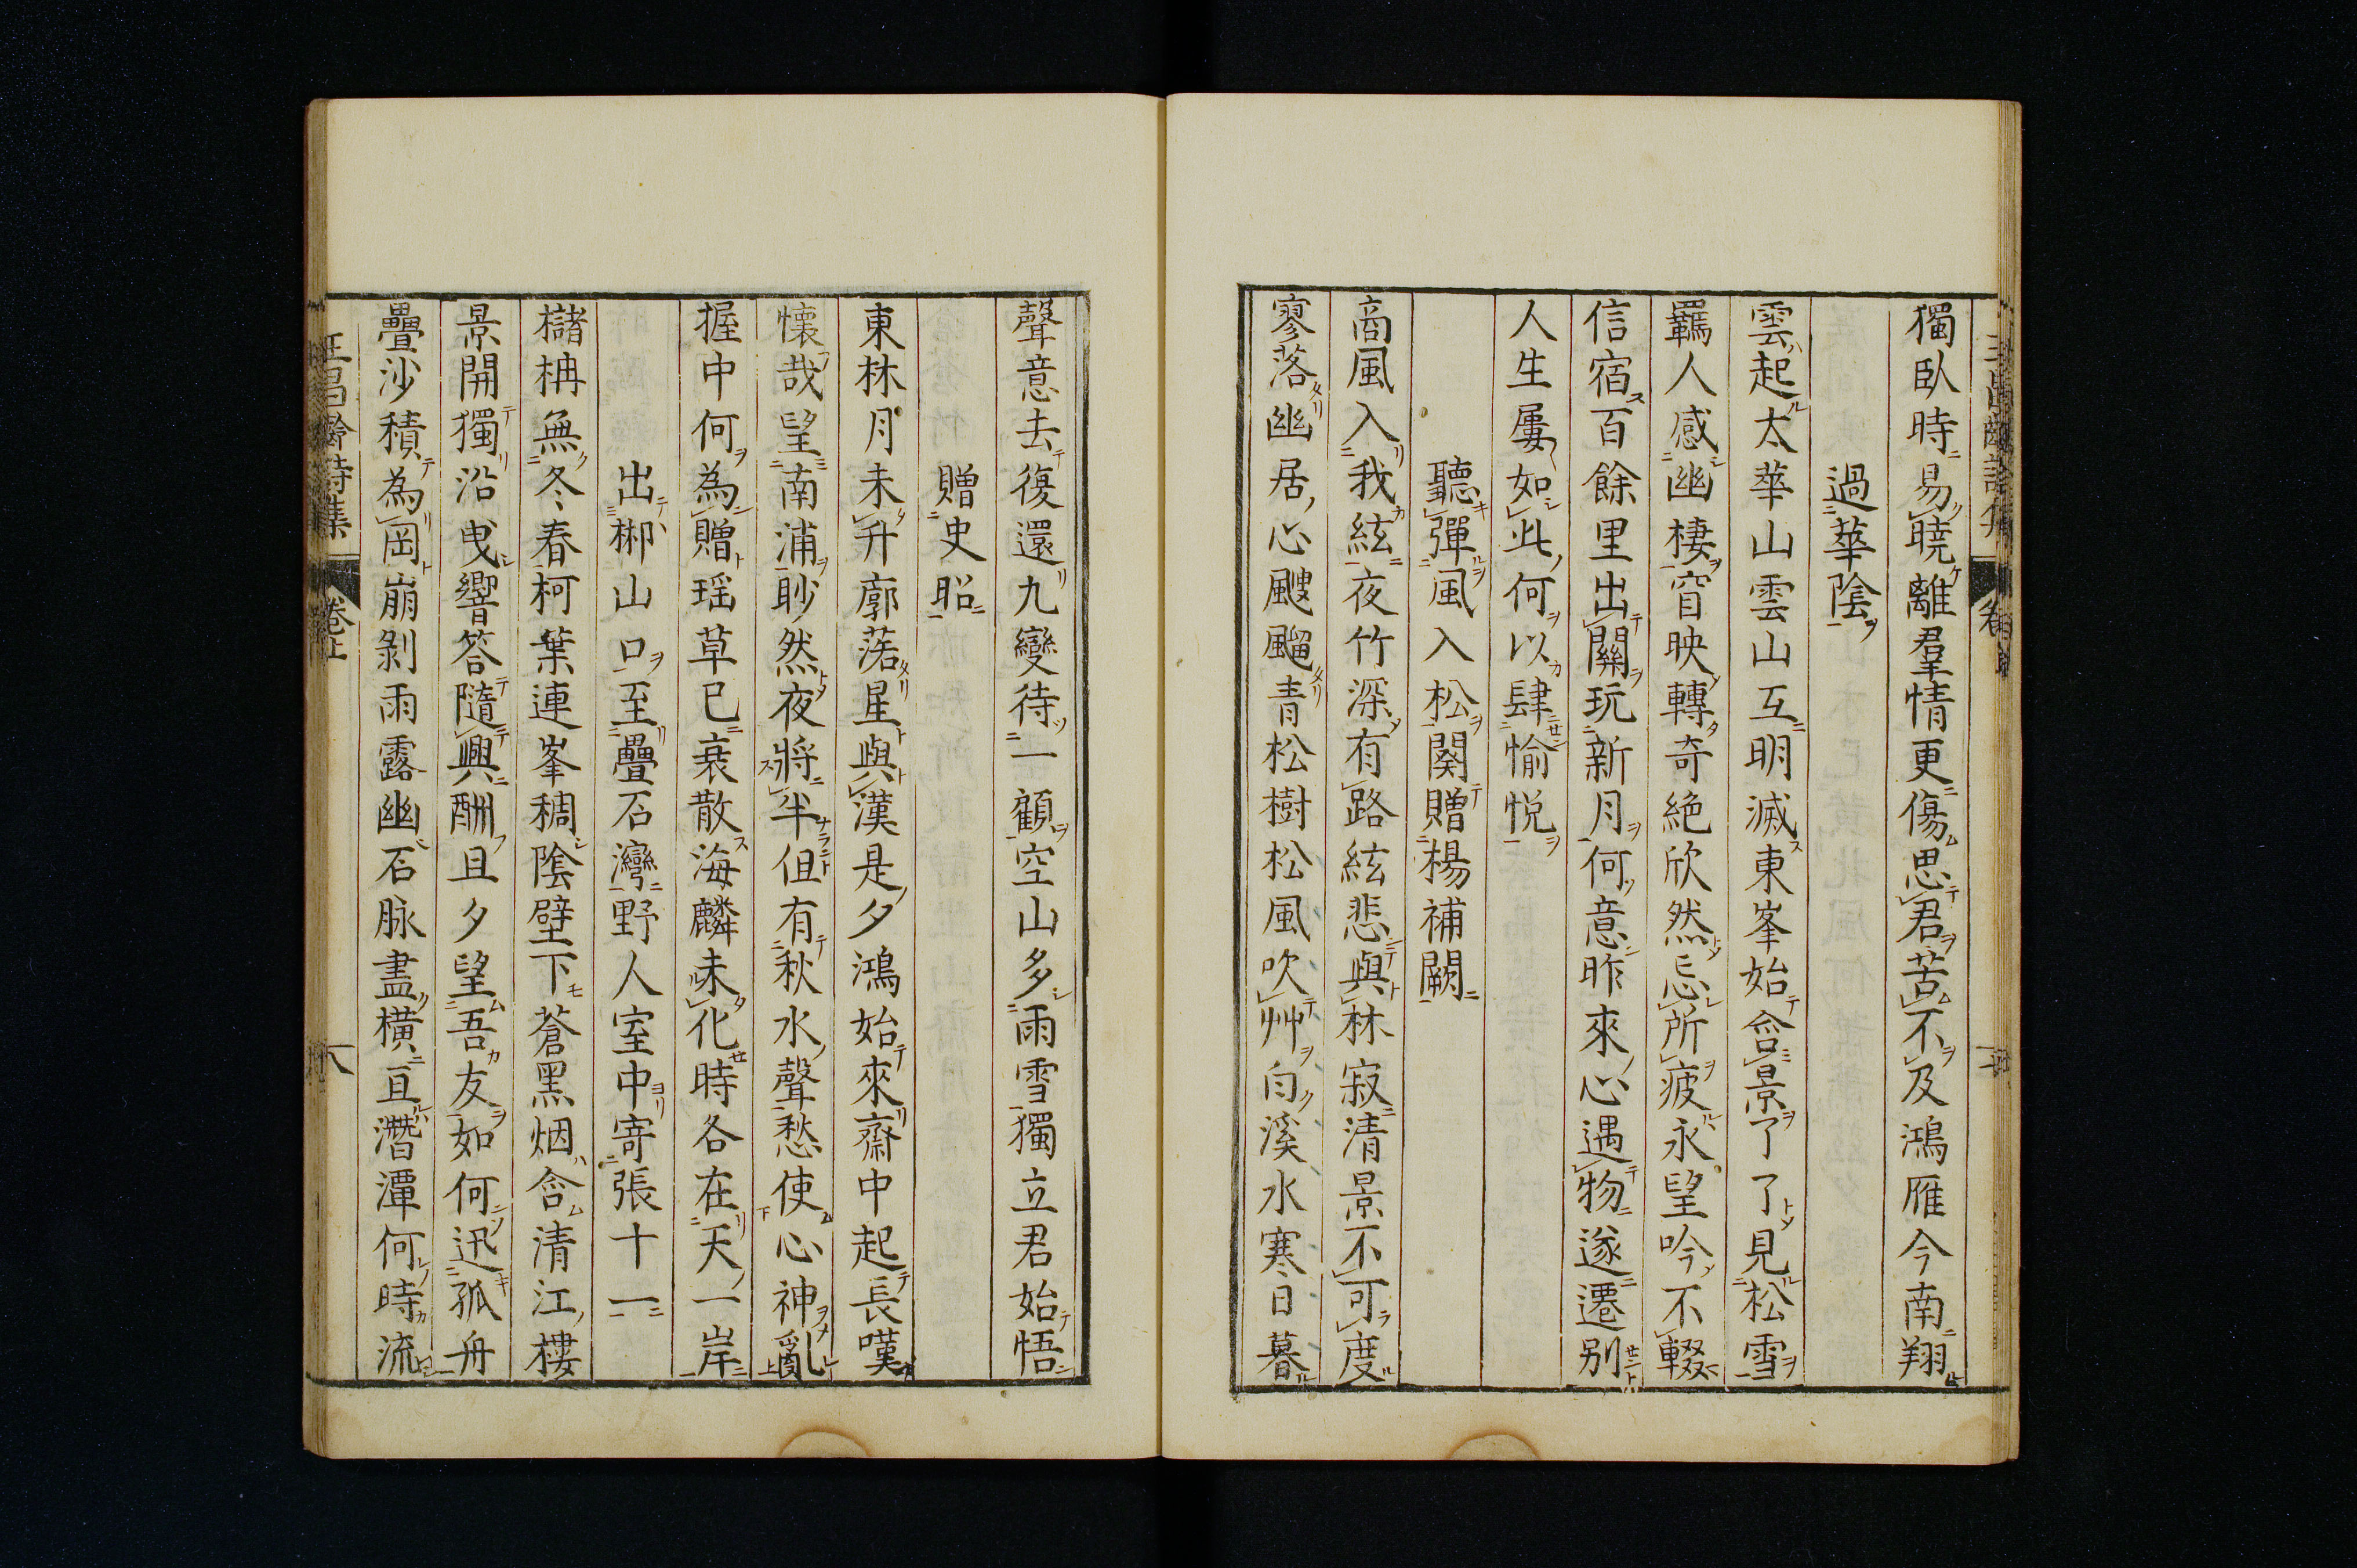 獨臥時易曉離羣情更傷思君苦不及鴻雁今南翔
過華陰
雲起太華山雲山互明滅東峯始含景了了見松雪
羈人感幽棲窅映轉奇絶欣然忘所疲永望吟不輟
信宿百餘里出關玩新月何意昨來心遇物遂遷别
人生屢如此何以肆愉悦
聽彈風入松闋贈楊補闕
商風入我絃夜竹深有路絃悲與林寂清景不可度
寥落幽居心颼飀青松樹松風吹艸白溪水寒日暮
聲意去復還九變待一顧空山多雨雪獨立君始悟
贈史昭
東林月未升廓落星與漢是夕鴻始來齋中起長嘆
懷哉望南浦眇然夜將半但有秋水聲愁使心神亂
握中何為贈瑶草已衰散海麟未化時各在天一岸
出郴山口至疊石灣野人室中寄張十一
櫧柟無冬春柯葉連峯稠陰壁下蒼黑烟含清江樓
景開獨沿曳響答隨興酬旦夕望吾友如何迅孤舟
疊沙積為岡崩剝雨露幽石脉盡横亘潛潭何時流
王昌齡詩集 卷上 八